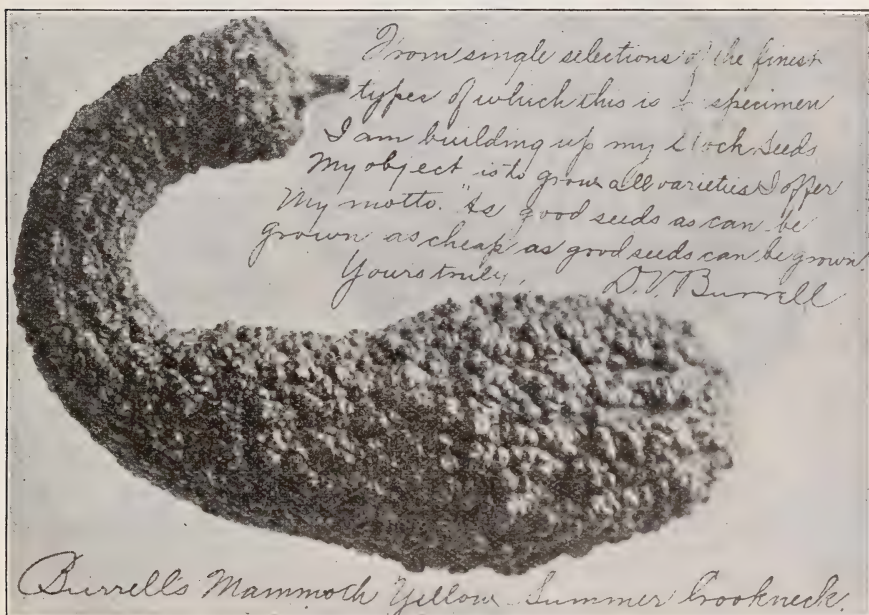 From single selections of the finest
types of which this is a specimen
I am building up my Stock Seeds
My object is to grow all varieties I offer
My motto. "As good seeds as can be
grown as cheap as good seeds can be grown.
Yours truly, D.V. Burrell
Burrell's Mammoth Yellow Summer Crookneck.